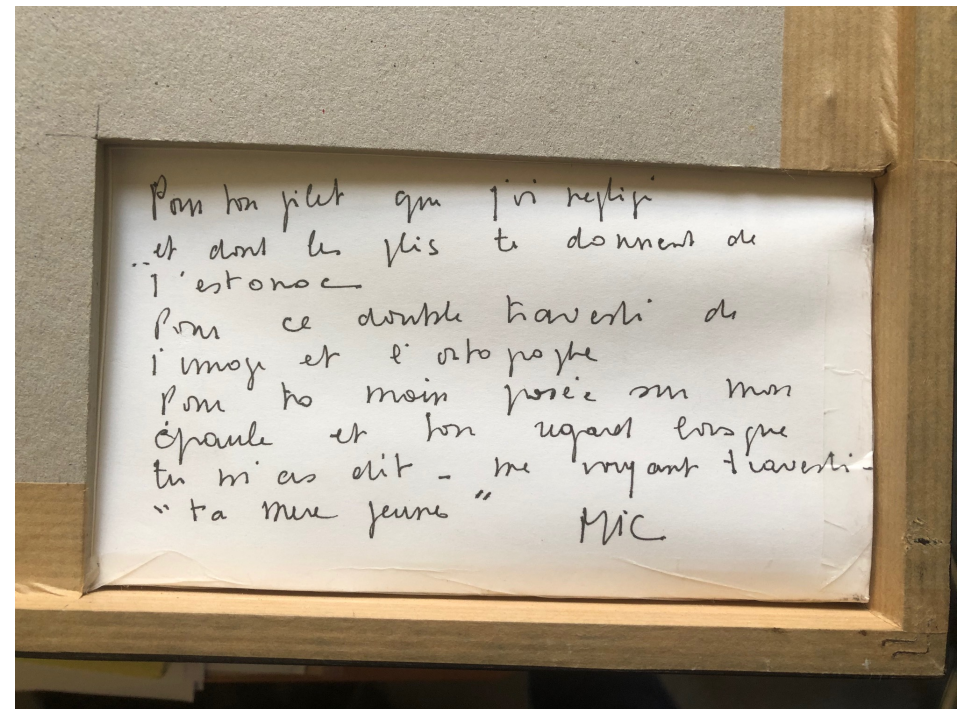 Pour ton gilet que j'ai negligé
et dont les plis te donnent de
l'estomac
Pour ce double travesti de
l'image et l'ortographe
Pour ta main posée sur mon
épaule et ton regard lorsque
tu m'as dit - me voyant travesti -
"ta mere jeune"
MiC